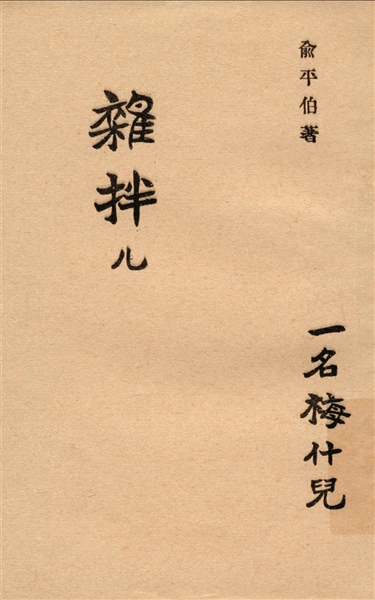 俞平伯著
雜拌儿
一名梅什兒